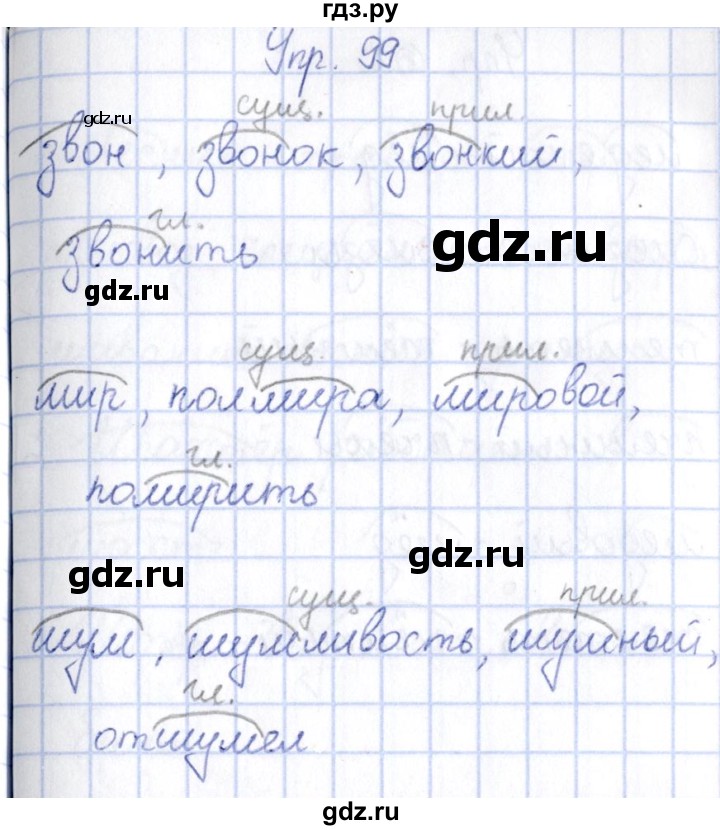 гдз.ру
Упр. 99
gdz.ru
сущ. прил
звон, звонок, звонкий,
гл.
звонить
gdz.ru
gdz.ru
сущ. прил.
мир, полмира, мировой,
гл.
помирить
gdz.ru
gdz.ru
сущ. прил.
шум, шумливость, шумный,
гл.
отшумел
gdz.ru